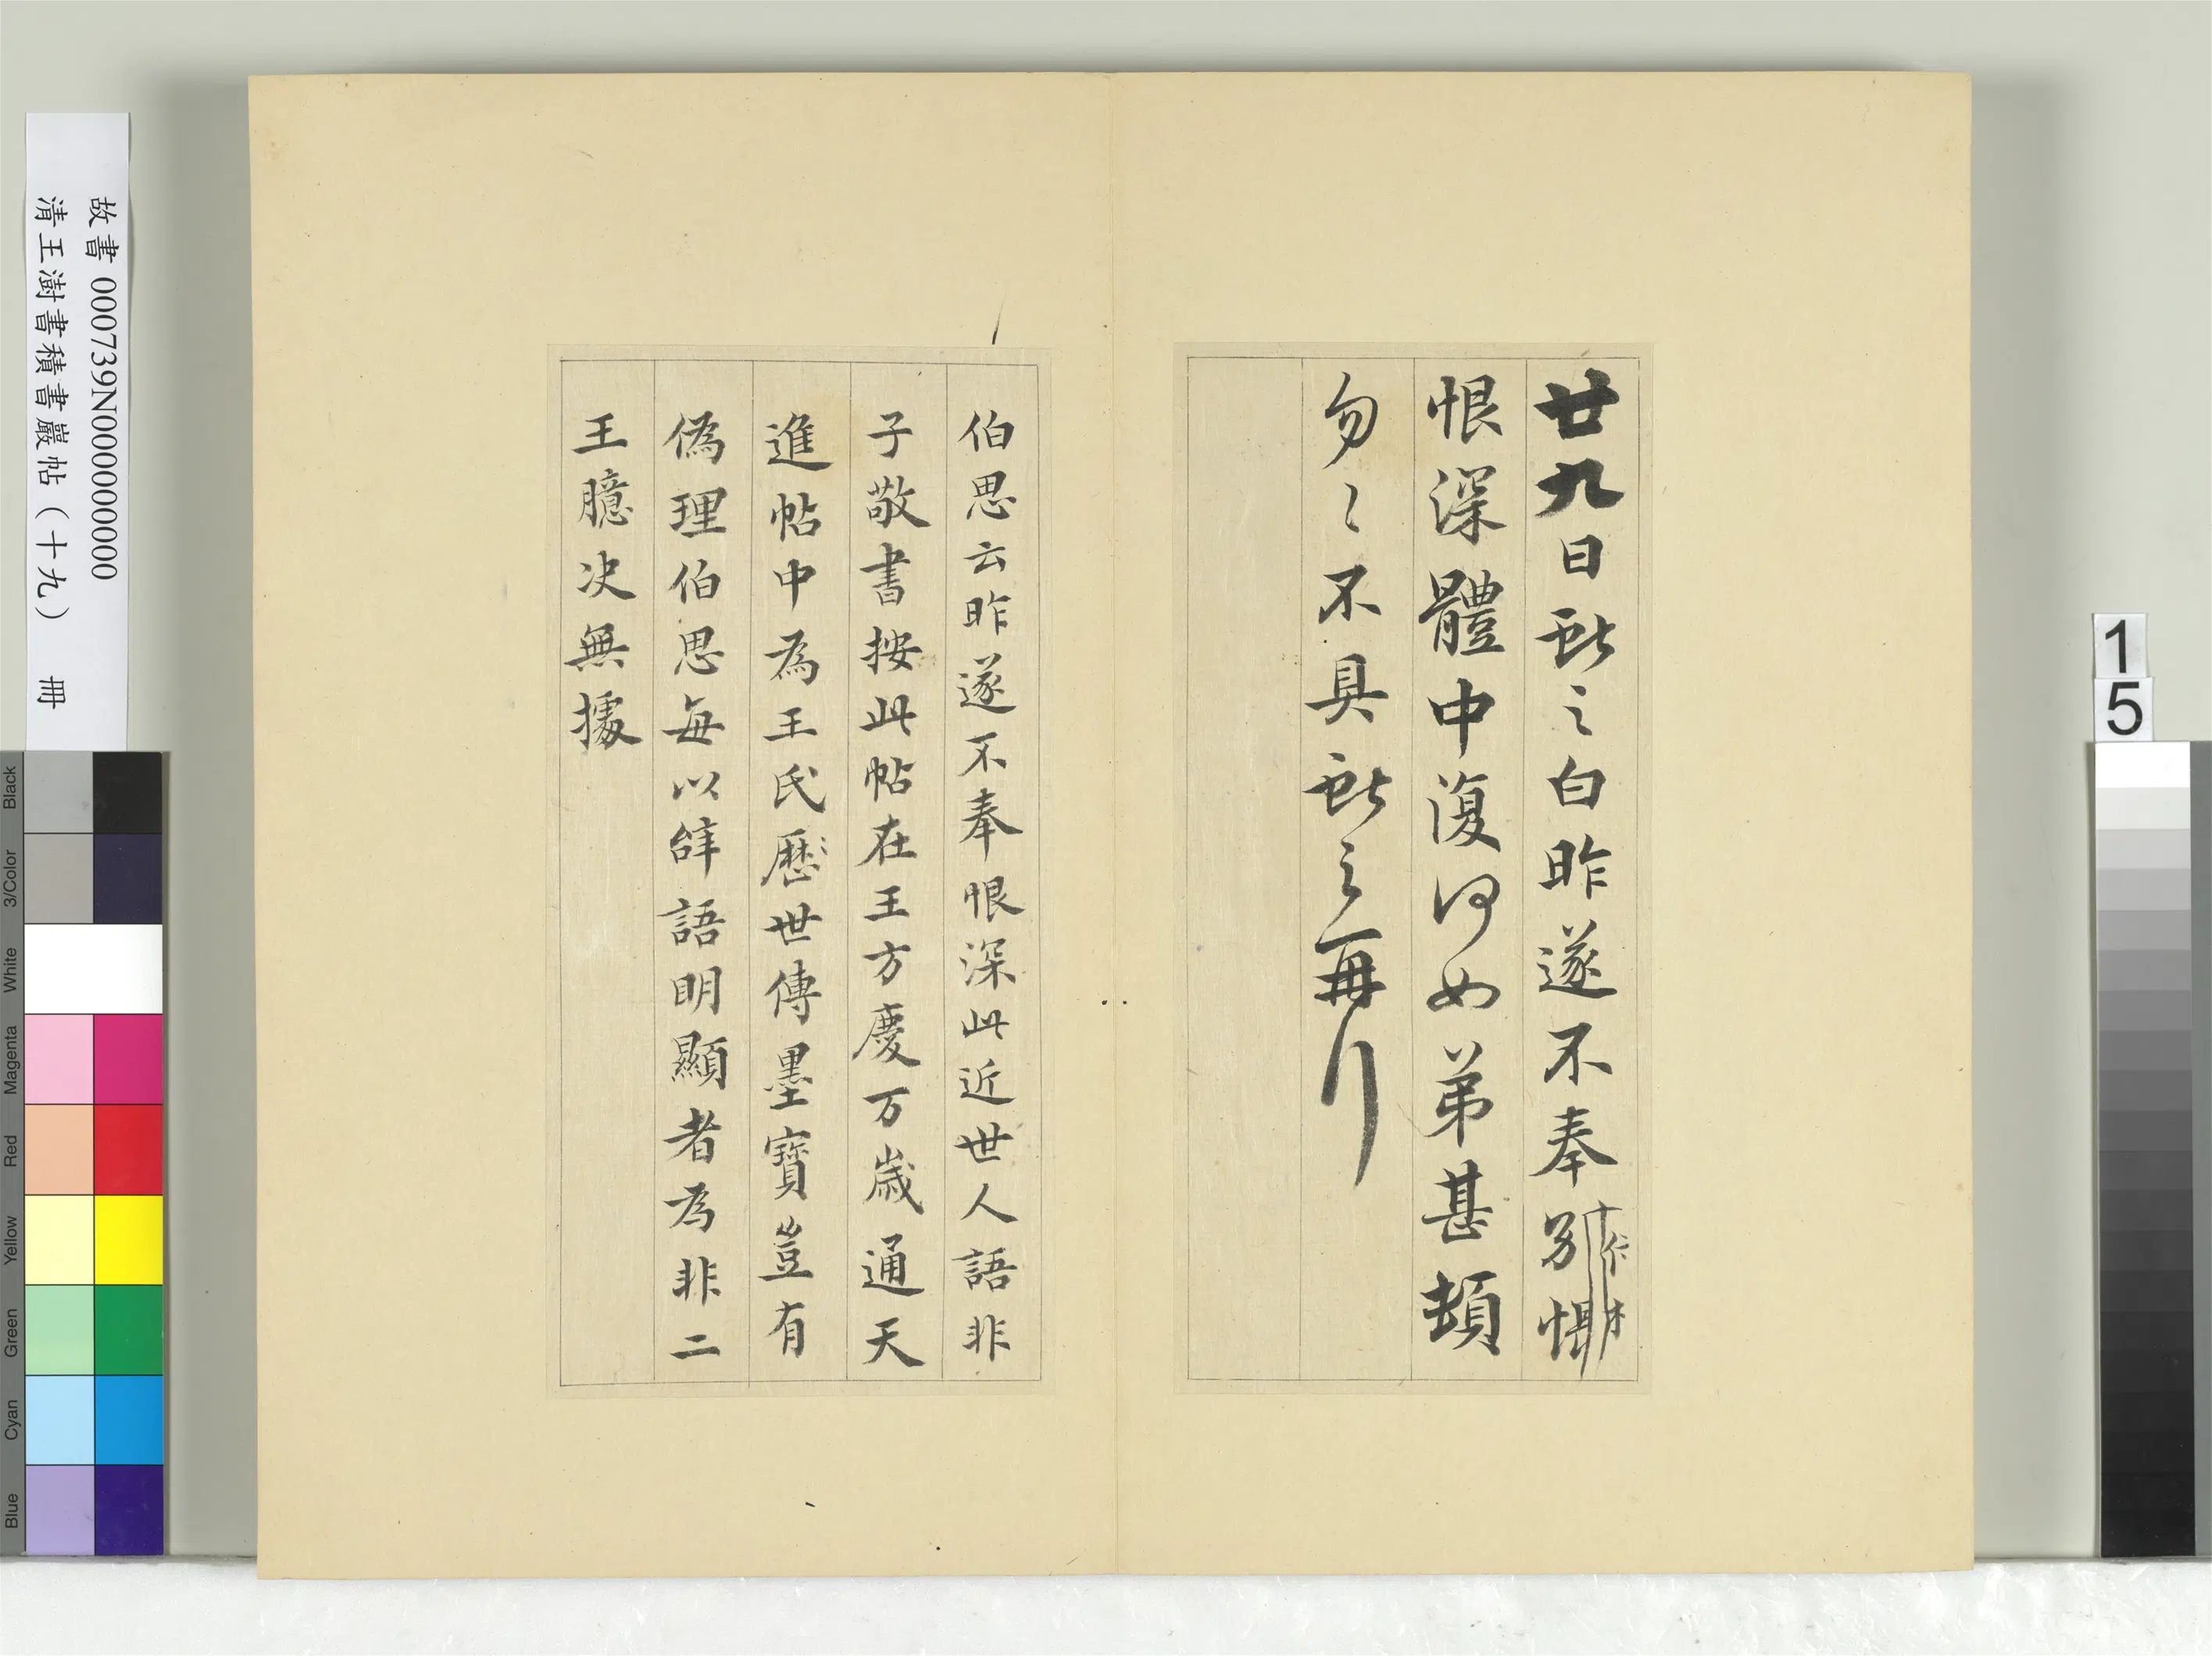 廿九日獻之白昨遂不奉別悵
恨深體中復何如弟甚頓
勿〻不具獻之再
伯思云昨遂不奉恨深此近世人語非
子敬書按此帖在王方慶万歲通天
進帖中為王氏歷世傳墨寶豈有
偽理伯思每以辝語明顯者為非二
王臆决無據
故書 000739N000000000
清王澍書積書巖帖(十九) 冊
15
Black
3/Color
White
Magenta
Red
Yellow
Green
Cyan
Blue